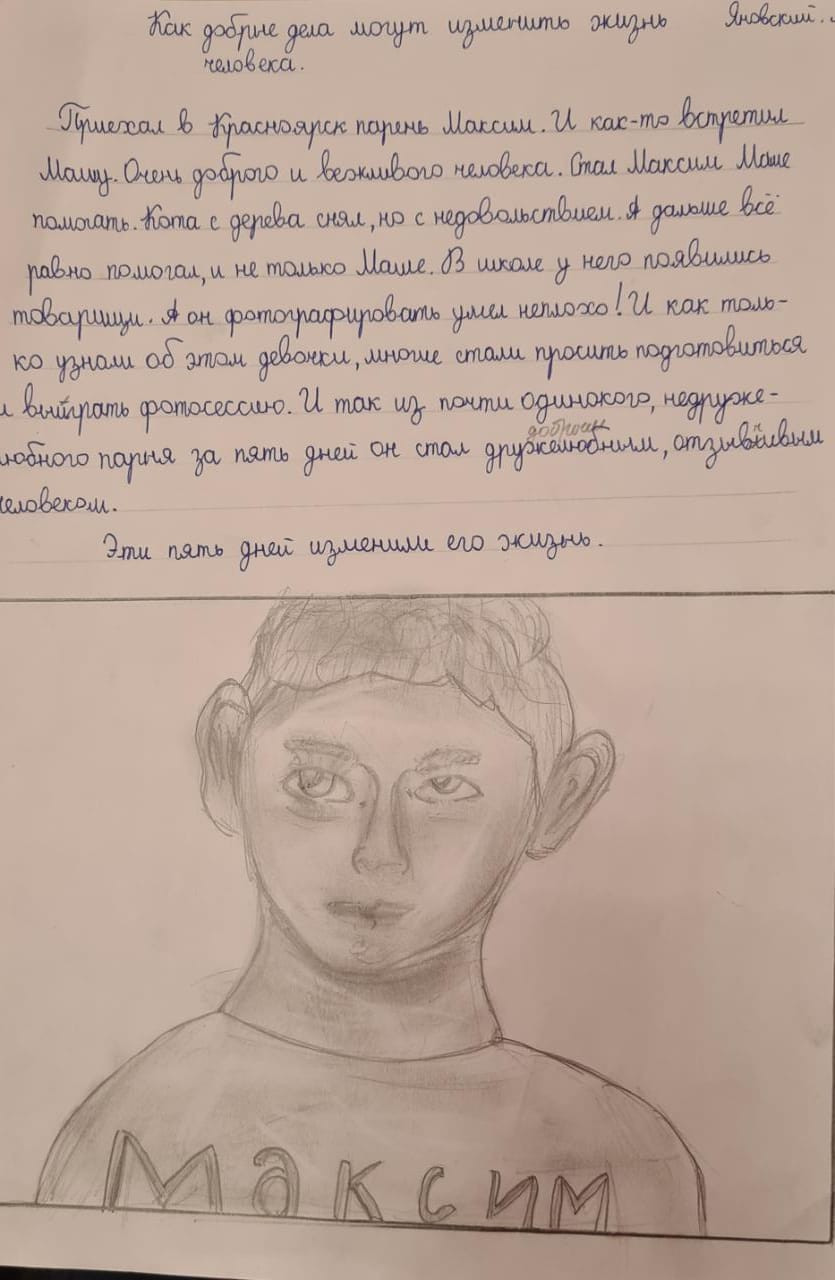 Как добрые дела могут изменить жизнь Яновский.
человека.
Приехал в Красноярск парень Максим. И как-то встретил
Машу. Очень доброго и вежливого человека. Стал Максим Маше
помогать. Кота с дерева снял, но с недовольствием. А дальше всё
равно помогал, и не только Маше. В школе у него появились
товарищи. А он фотографировать умел неплохо! И как толь-
ко узнали об этом девочки, многие стали просить подготовиться
и выиграть фотосессию. И так из почти одинокого, недруже-
добрым
любного парня за пять дней он стал дружелюбным, отзывчивым
человеком.
Эти пять дней изменили его жизнь.
Максим